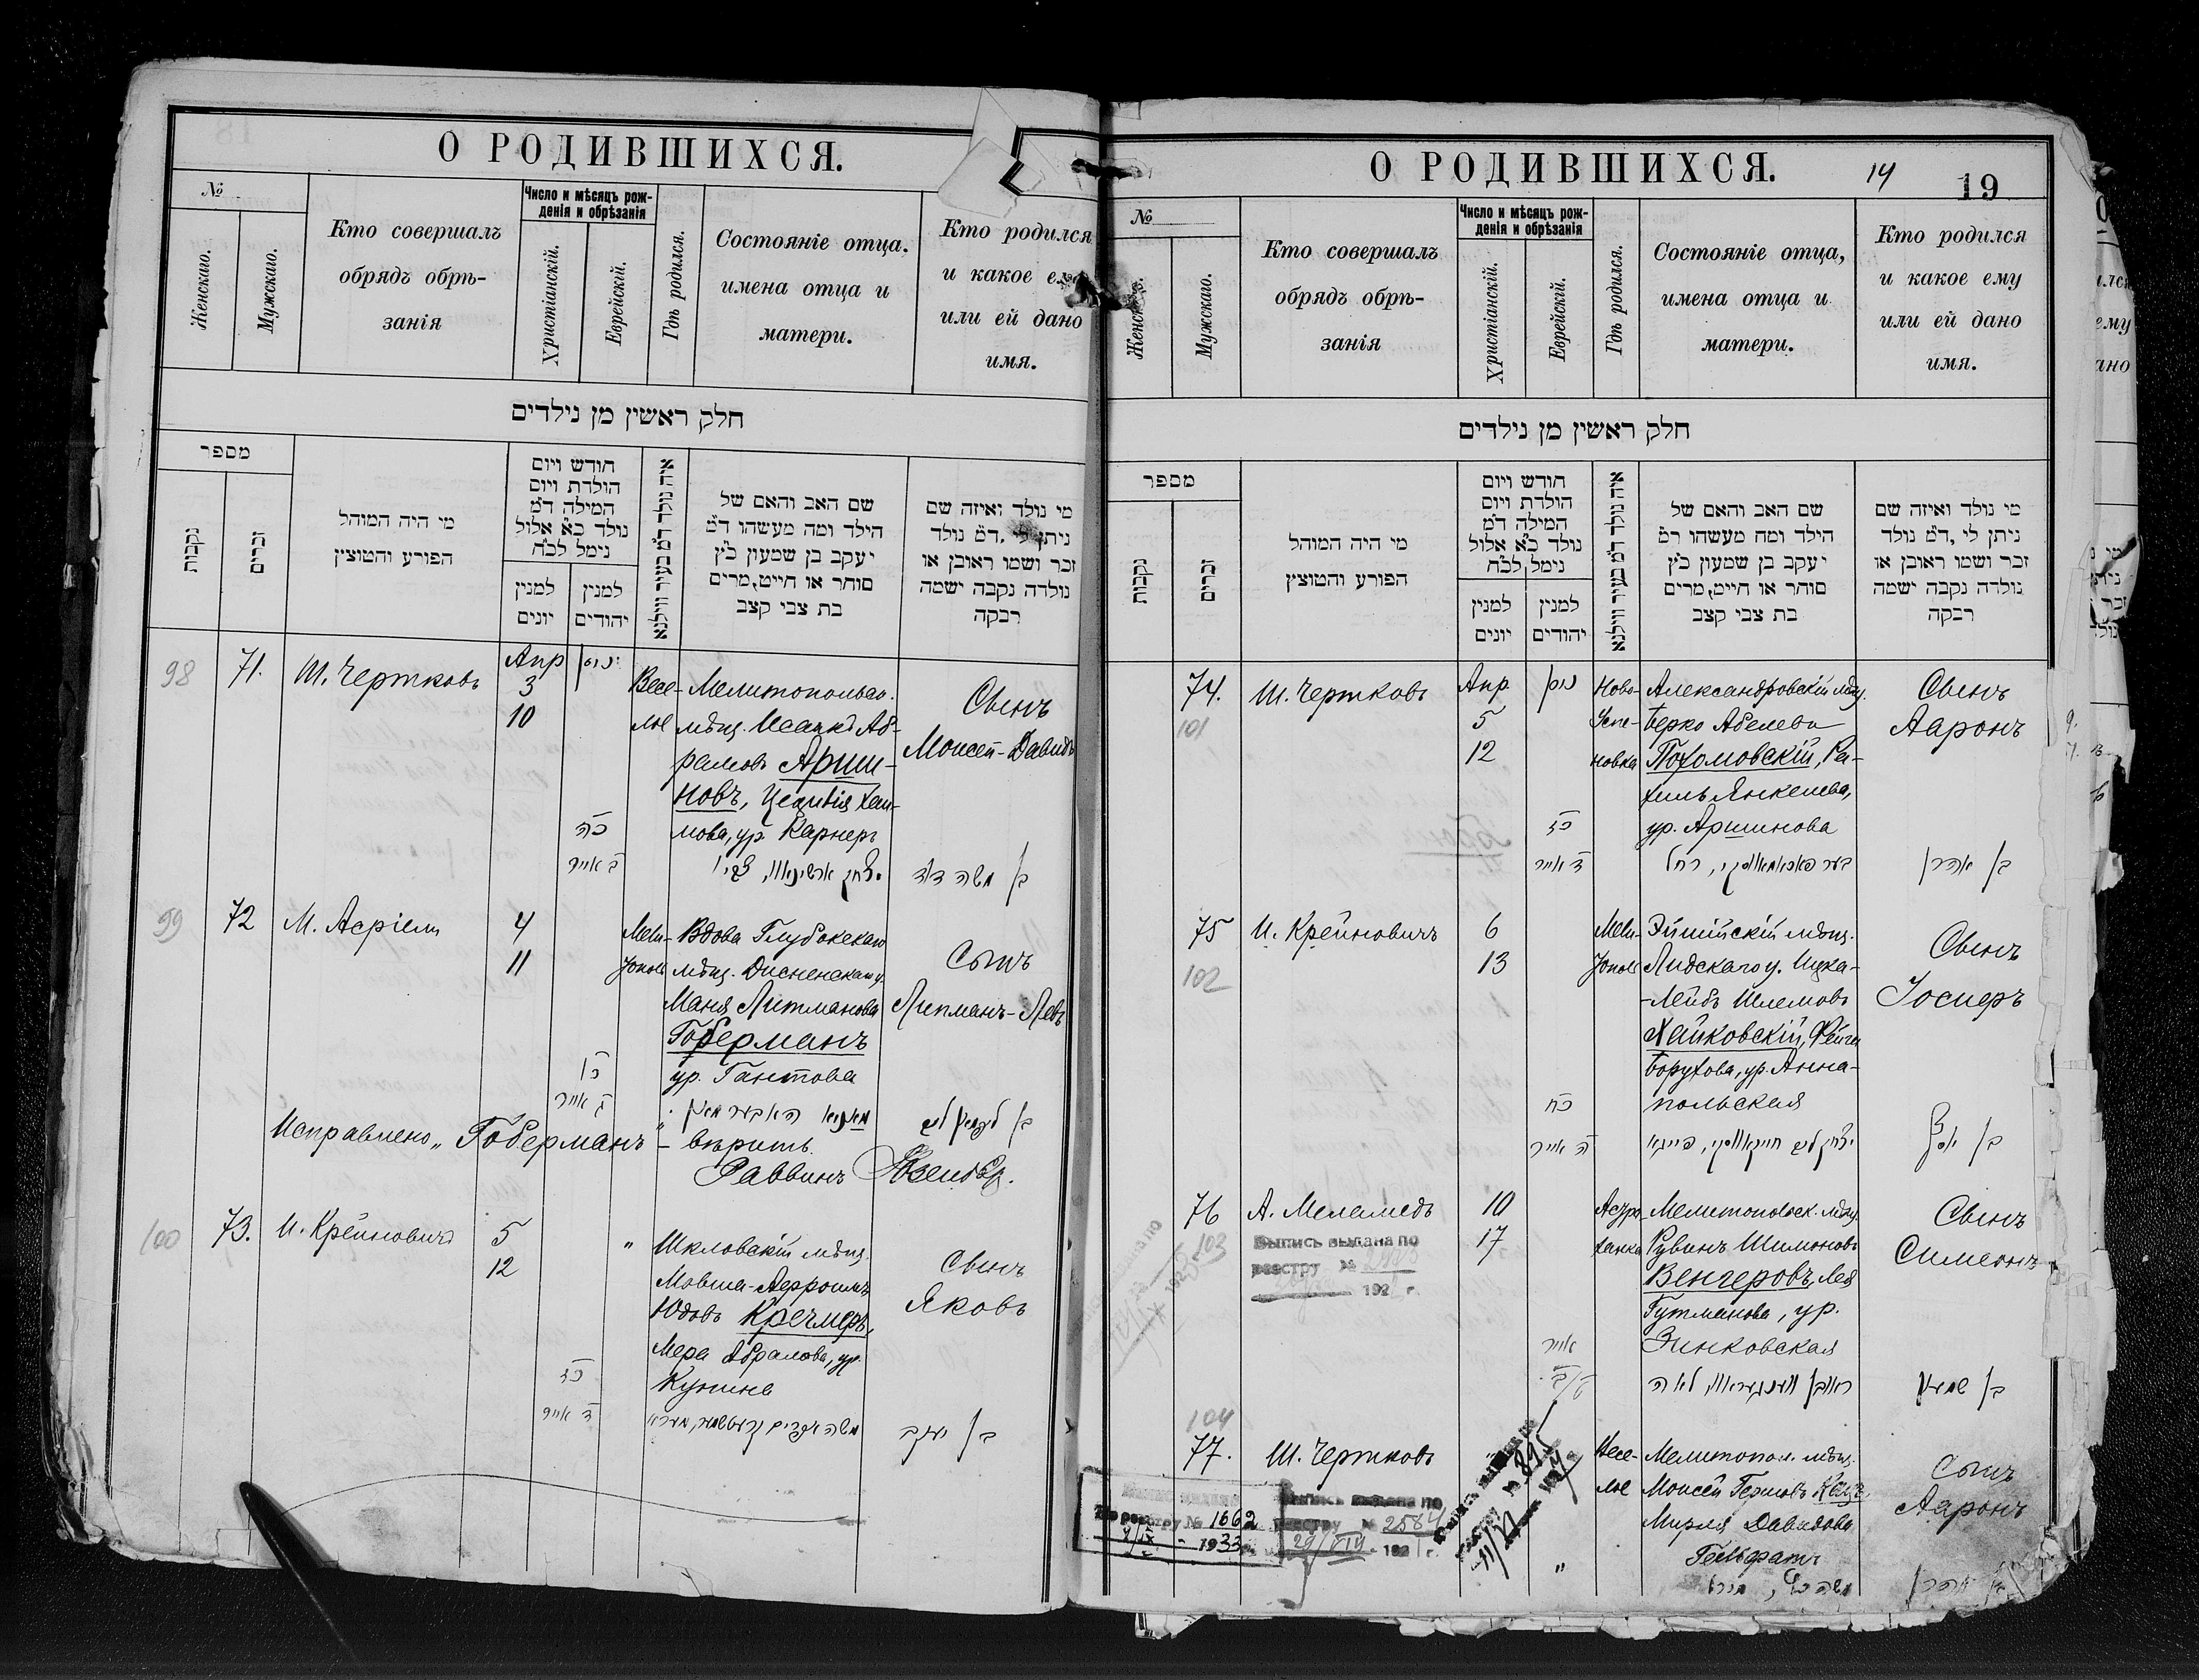 О РОДИВШИХСЯ.
№
Женскаго.
Мужскаго.
Кто совершалъ
обрядъ обрѣ-
занія
Число и мѣсяцъ рож-
денія и обрѣзанія
Христіанскій.
Еврейскій.
Гдѣ родился.
Состояніе отца,
имена отца и
матери.
Кто родился
и какое ему
или ей дано
имя.
חלק ראשין מן נילדים
מספר
נקבות
זכרים
מי היה המוהל
הפורע והמוצץ
חודש ויום
הולדת ויום
המילה ד״מ
נולד כ״א אלול
נימל לכ״ח
למנין
יונים
למנין
יהודים
איה נולד ד״מ בעיר ווילנא
שם האב והאם של
הילד ומה מעשהו ד״מ
יעקב בן שמעון כ״ץ
סוחר או חייט, מרים
בת צבי קצב
מי נולד ואיזה שם
ניתן לי, ד״מ נולד
זכר ושמו ראובן או
נולדה נקבה ישמה
רבקה
98
71.
Ш. Чертковъ
Апр
3
10
ניסן
כה
ב אייר
Весе-
лое
Мелитопольск.
мѣщ. Исаакъ Аб-
рамовъ Арши-
новъ,
мова, ур. Карнеръ
Сынъ
Моисей-Давидъ
בן משה דוד
99
72
М. Асріелъ
4
11
כו
ג אייר
Мели-
тополь
Вдова Глубокскаго
мѣщ. Дисненскаго у.
Маня Литманова
Гоберманъ
ур. Гантова
Сынъ
Липманъ-Левъ
Исправлено „Гоберманъ" - вѣрить.
Раввинъ
100
73.
И. Крейновичъ
5
12
כז
ד אייר
"
Шкловскій мѣщ.
Мовша-
Юдовъ Кречмеръ,
Мера Абрамова, ур.
Кунина
Сынъ
Яковъ
בן יעקב
О РОДИВШИХСЯ.
14
19
№
Женскаго.
Мужскаго.
Кто совершалъ
обрядъ обрѣ-
занія
Число и мѣсяцъ рож-
денія и обрѣзанія
Христіанскій.
Еврейскій.
Гдѣ родился.
Состояніе отца,
имена отца и
матери.
Кто родился
и какое ему
или ей дано
имя.
חלק ראשין מן נילדים
מספר
נקבות
זכרים
מי היה המוהל
הפורע והמוצץ
חודש ויום
הולדת ויום
המילה ד״מ
נולד כ״א אלול
נימל לכ״ח
למנין
יונים
למנין
יהודים
איה נולד ד״מ בעיר ווילנא
שם האב והאם של
הילד ומה מעשהו ד״מ
יעקב בן שמעון כ״ץ
סוחר או חייט, מרים
בת צבי קצב
מי נולד ואיזה שם
ניתן לי, ד״מ נולד
זכר ושמו ראובן או
נולדה נקבה ישמה
רבקה
74.
101
Ш. Чертковъ
Апр.
5
12
ניסן
כז
ד אייר
Ново-
Успе-
новка
Александровскій мѣщ.
Берко Абелевъ
Похомовскій, Ра-
хиль Янкелева,
ур. Аршинова
Сынъ
Ааронъ
בן אהרן
75
102
И. Крейновичъ
6
13
כח
ה אייר
Мели-
тополь
Эйшишскій мѣщ.
Лидскаго у. Ицка-
-Лейбъ Шлемовъ
Хайковскій, Фейга
Борухова, ур. Анна-
польская
Сынъ
Іосифъ
בן יוסף
76
103
А. Меламедъ
10
17
אייר
Мелитопольск. мѣщ.
Рувинъ Шимоновъ
Венгеровъ, Лея
Гутманова, ур.
Зинковская
ראובן ווענגעראוו, לאה
Сынъ
Симеонъ
בן שמעון
Выпись выдана по
реестру №
192 г.
104
77.
Ш. Чертковъ
"
Весе-
лое
Мелитопол. мѣщ.
Моисей Гершовъ Кацъ
Мирля Давидова
Гельфатъ
Сынъ
Ааронъ
בן אהרן
По реестру № 1662
1933 г.
Выпись выдана по
реестру № 2584
29/VIII 1921 г.